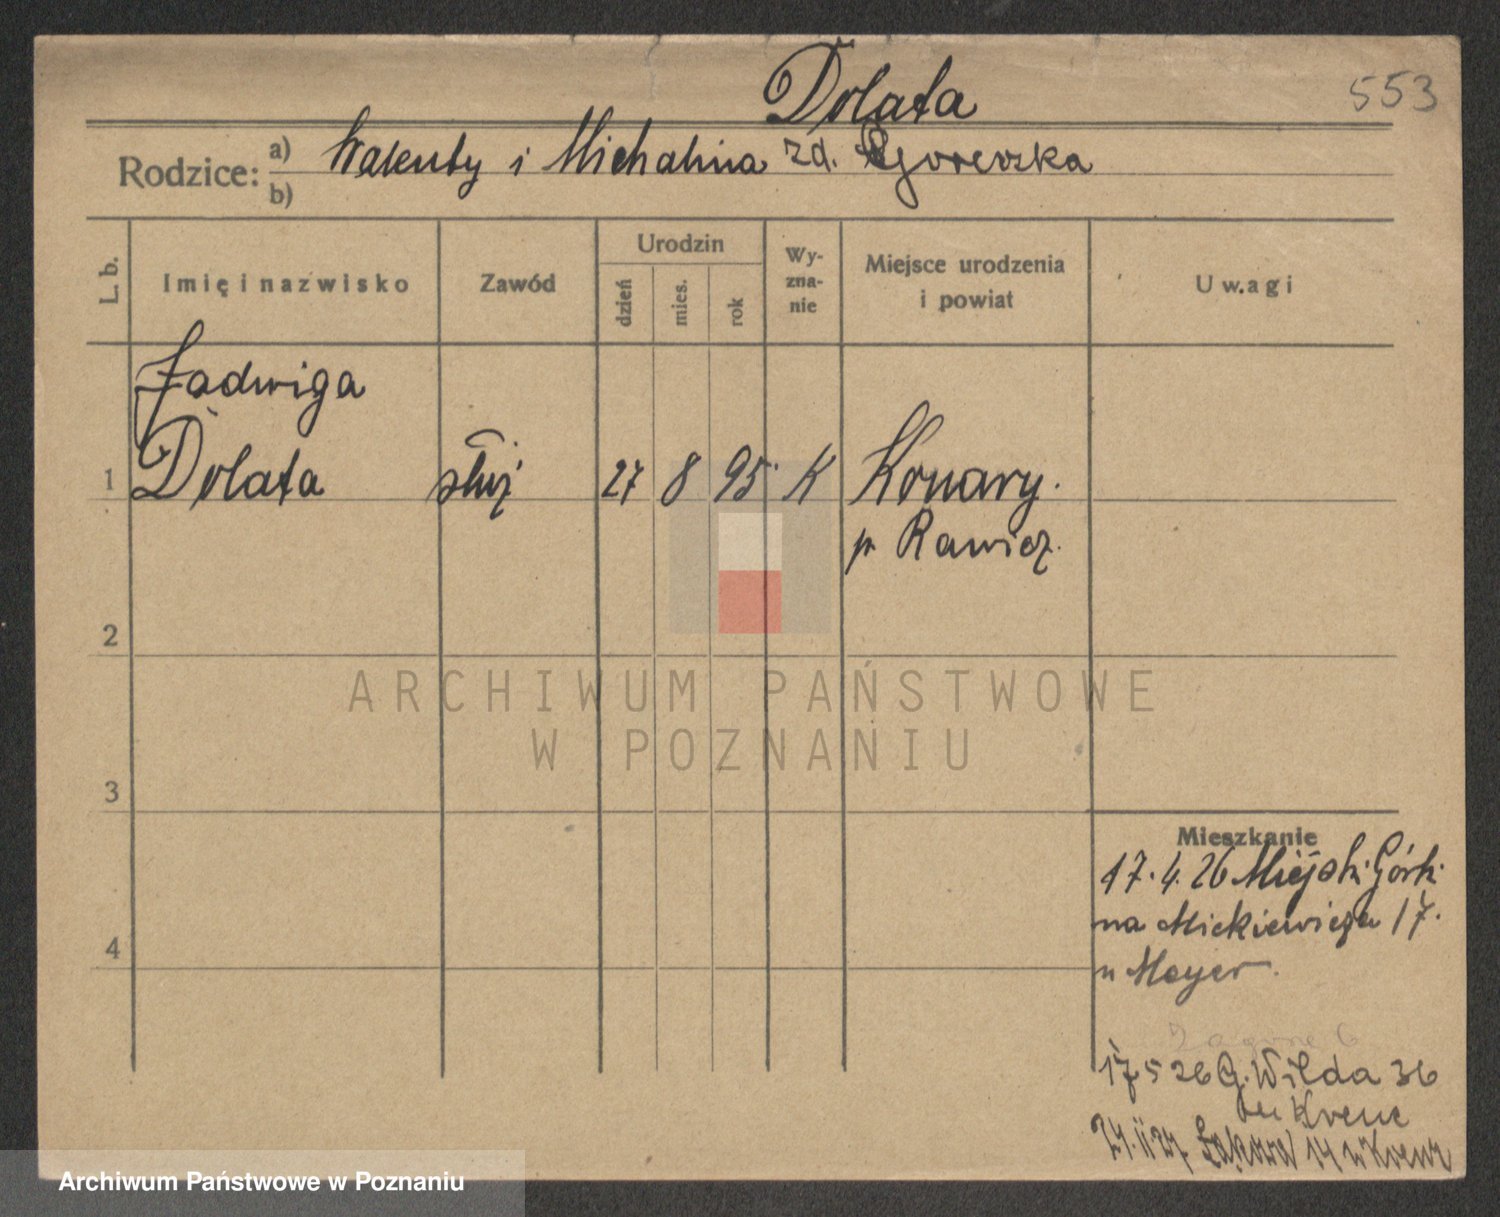 Dolata
553
Rodzice: a) Walenty i Michalina zd. Goreczka
b)
L. b.
Imię i nazwisko
Zawód
Urodzin
dzień
mies.
rok
Wy-
zna-
nie
Miejsce urodzenia
i powiat
Uwagi
Jadwiga
1 Dolata służ 27 8 95 K Konary.
p. Rawicz.
2
ARCHIWUM PAŃSTWOWE
W POZNANIU
3
Mieszkanie
17. 4. 26 Miejski Górki
na Mickiewicza 17.
4
u Meyer.
Zagórze 6
17 5 26 G. Wilda 36
u Krenc
24. II 27 Łąkowa 14 u Krenz
Archiwum Państwowe w Poznaniu